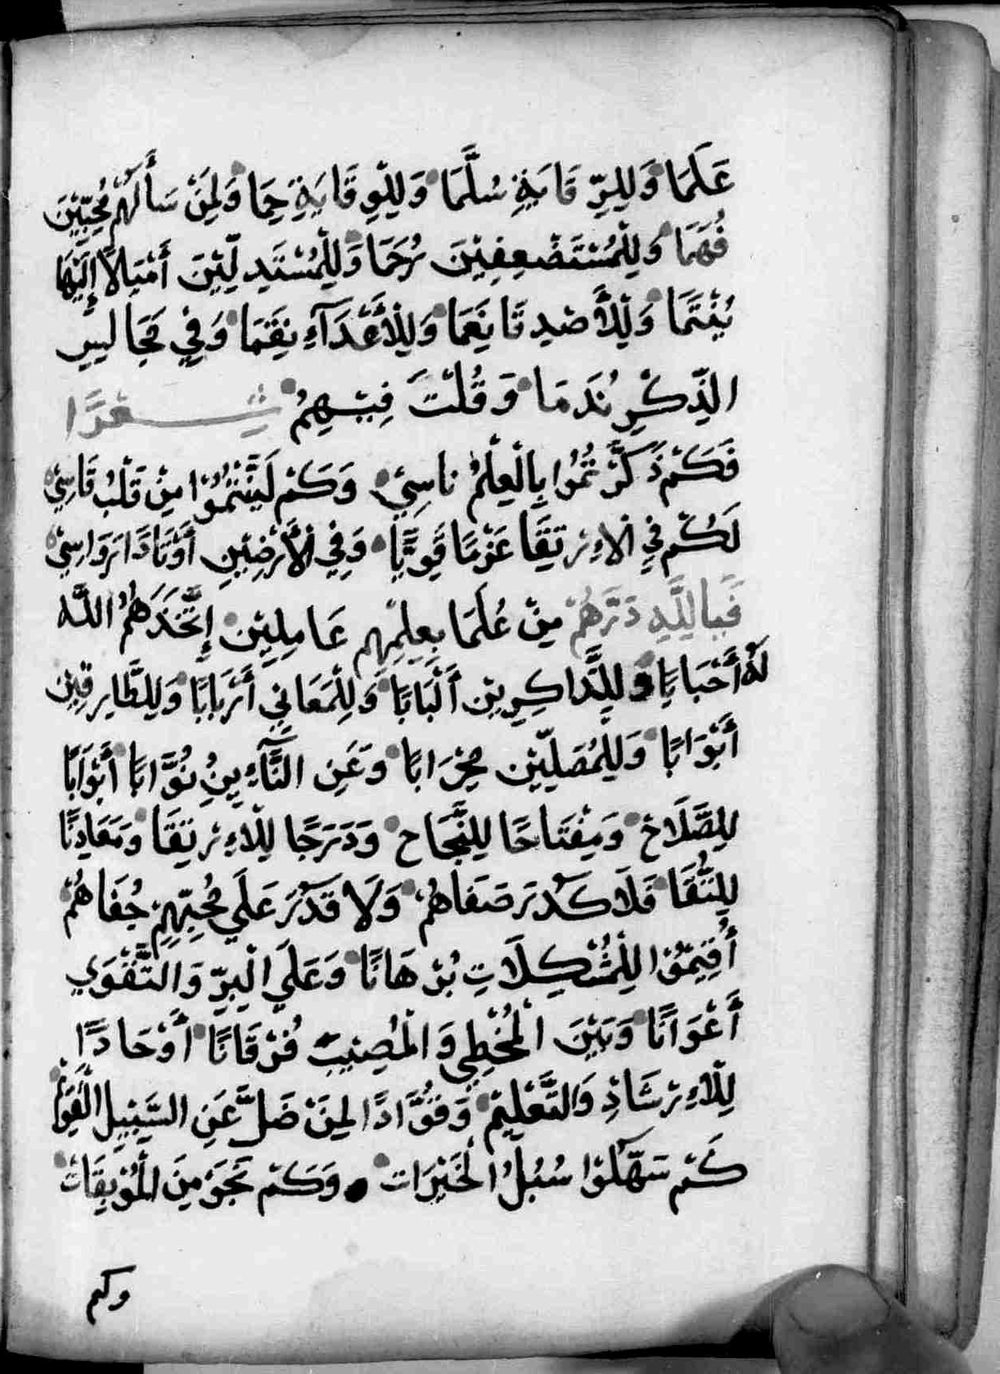 عَلَمَا وَلِلرِّقَايَةِ سُلَّمَا وَلِلْوِقَايَةِ حِمَا وَلِمَنْ سَأَلَهُمْ مُجِيْبِيْنَ
فُهَمَا وَلِلْمُسْتَضْعِفِيْنَ رُحَمَا وَلِلْمُسْتَدِلِّيْنَ أَمْيَالًا إِلَيْهَا
يُنْتَمَا وَلِلْأَصْدِقَا نِعَمَا وَلِلْأَعْدَآءِ نِقَمَا وَفِي مَجَالِسِ
الذِّكْرِ نُدَمَا وَقُلْتَ فِيْهِمُ شِعْرًا
فَكَمْ ذَكَّرْتُمُوا بِالْعِلْمِ نَاسِيْ وَكَمْ لَيَّنْتُمُوْا مِنْ قَلْبِ قَاسِيْ
لَكُمْ فِي الْاءِرْتِقَا عَزْمًا قَوِيًّا وَفِي الْأَرْضِيْنِ أَوْتَادًا رَوَاسِيْ
فَبِاللَّهِ دَرَّهُمْ مِنْ عُلَمَا بِعِلْمِهِمْ عَامِلِيْنَ إِتَّخَذَهُمُ اللَّه
لَهُ أَحْبَابًا وَلِلذَّاكِرِيْنَ أَلْبَابًا وَلِلْمَعَانِي أَرْبَابًا وَلِلطَّارِقِيْنَ
أَبْوَابًا وَلِلْمُصَلِّيْنَ مِحْرَابًا وَعَنِ النَّآءِيْنَ نُوَّابًا أَبْوَابًا
لِلصَّلَاحْ وَمِفْتَاحًا لِلنَّجَاحْ وَدَرَجًا لِلْاءِرْتِقَا وَمَعَادِنًا
لِلتُّقَا فَلَا كَدُرَ صَفَاهُمْ وَلَا قَدَرَ عَلَي مُحِبِّهِمْ جُفَاهُمْ
أُقِيْمُوْا لِلْمُشْكِلَاتِ بُرْهَانًا وَعَلَي الْبِرِّ وَالتَّقْوَي
أَعْوَانًا وَبَيْنَ الْمُخْطِي وَالْمُصِيْبِ فُرْقَانًا أَوْحَادًا
لِلْاءِرْشَادِ وَالتَّعْلِيْمْ وَقُوَّادًا لِمَنْ ضَلَّ عَنِ السَّبِيْلِ الْقَوِيْمْ
كَمْ سَهَّلُوْا سُبُلُ الْخَيْرَاتْ وَكَمْ نَجَوْ مِنَ الْمُوْبِقَاتْ
وكم